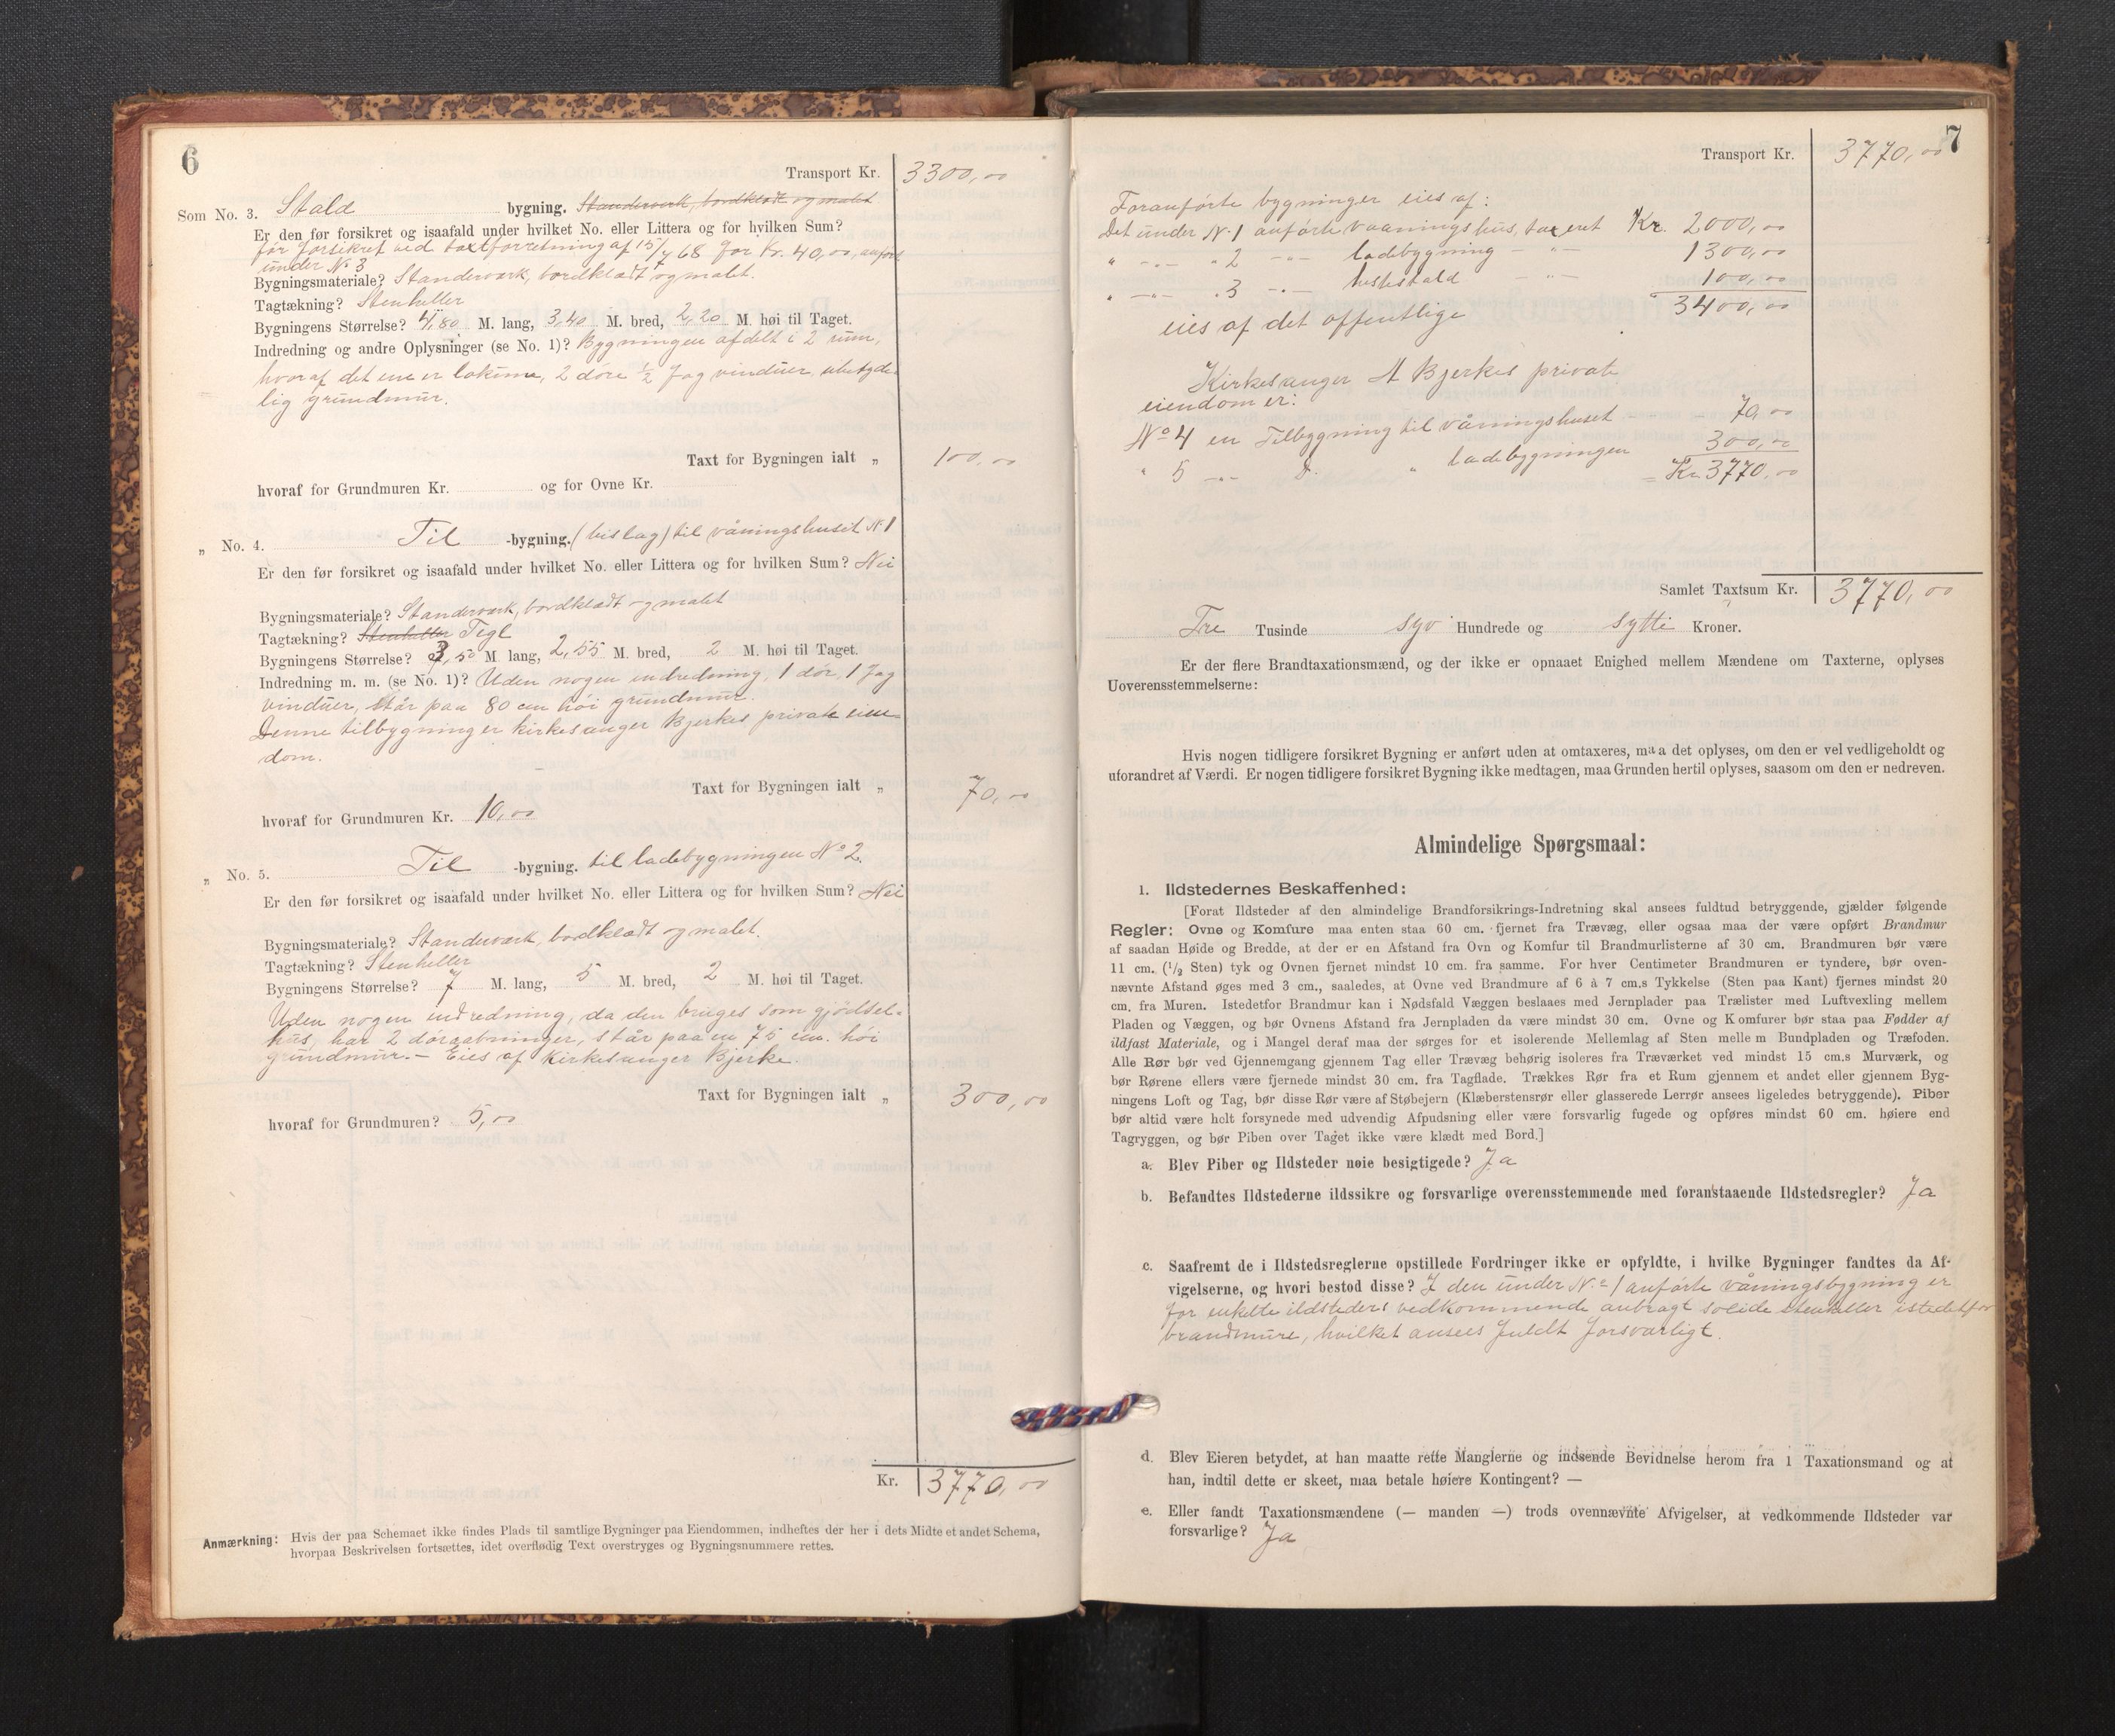 6
Transport Kr. 3300,00
Som No. 3. Stald bygning. Standerverk, bordklædt og malet
Er den før forsikret og isaafald under hvilket No. eller Littera og for hvilken Sum?
før forsikret ved taxtforretning af 15/7 68 for Kr. 40,00, anført
under No 3
Bygningsmateriale? Standerværk, bordklædt og malet.
Tagtækning? Stenheller
Bygningens Størrelse? 4,80 M. lang, 3,40 M. bred, 2,20 M. høi til Taget.
Indredning og andre Oplysninger (se No. 1)? Bygningen afdelt i 2 rum,
hvoraf det ene er lokum, 2 döre 1/2 fag vinduer, ubetyde-
lig grundmur.
Taxt for Bygningen ialt „ 100,00
hvoraf for Grundmuren Kr. og for Ovne Kr.
„ No. 4. Til -bygning. (bislag) til våningshuset No 1
Er den før forsikret og isaafald under hvilket No. eller Littera og for hvilken Sum? Nei
Bygningsmateriale? Standerværk, bordklædt og malet
Tagtækning? Stenheller Tegl
Bygningens Størrelse? 3,50 M lang, 2,55 M. bred, 2 M. høi til Taget.
Indredning m. m. (se No. 1)? Uden nogen indredning, 1 dör, 1 fag
vinduer, står paa 80 cm höi grundmur.
Denne tilbygning er kirkesanger Bjerkes private eien-
dom.
Taxt for Bygningen ialt „ 70,00
hvoraf for Grundmuren Kr. 10,00
„ No. 5. Til -bygning. til ladebygningen No 2.
Er den før forsikret og isaafald under hvilket No. eller Littera og for hvilken Sum? Nei
Bygningsmateriale? Standerværk, bordklædt og malet.
Tagtækning? Stenheller
Bygningens Størrelse? 7 M. lang, 5 M. bred, 2 M. høi til Taget.
Uden nogen indredning, da den bruges som gjödsel-
hus, har 2 döraabninger, står paa en 75 cm. höi
grundmur. - Eies af Kirkesanger Bjerke.
Taxt for Bygningen ialt „ 300,00
hvoraf for Grundmuren? 5,00
Kr. 3770,00
Anmærkning: Hvis der paa Schemaet ikke findes Plads til samtlige Bygninger paa Eiendommen, indheftes der her i dets Midte et andet Schema,
hvorpaa Beskrivelsen fortsættes, idet overflødig Text overstryges og Bygningsnummere rettes.
7
Transport Kr. 3770,00
Foranförte bygninger eies af:
Det under No 1 anförte vaaningshus, taxeret Kr. 2000,00
" -"- " 2 -"- ladebygning - "- 1300,00
" -"- " 3 -"- hestestald - "- 100,00
eies af det offentlige 3400,00
Kirkesanger A Bjerkes private
eiendom er:
No 4 en Tilbygning til våningshuset - - 70,00
" 5 -"- D. " ladebygningen 300,00
= Kr 3770,00
Samlet Taxtsum Kr. 3770,00
Tre Tusinde syv Hundrede og sytti Kroner.
Er der flere Brandtaxationsmænd, og der ikke er opnaaet Enighed mellem Mændene om Taxterne, oplyses
Uoverensstemmelserne:
Hvis nogen tidligere forsikret Bygning er anført uden at omtaxeres, maa det oplyses, om den er vel vedligeholdt og
uforandret af Værdi. Er nogen tidligere forsikret Bygning ikke medtagen, maa Grunden hertil oplyses, saasom om den er nedreven.
Almindelige Spørgsmaal:
1. Ildstedernes Beskaffenhed:
[Forat Ildsteder af den almindelige Brandforsikrings-Indretning skal ansees fuldtud betryggende, gjælder følgende
Regler: Ovne og Komfure maa enten staa 60 cm. fjernet fra Trævæg, eller ogsaa maa der være opført Brandmur
af saadan Høide og Bredde, at der er en Afstand fra Ovn og Komfur til Brandmurlisterne af 30 cm. Brandmuren bør være
11 cm. (1/2 Sten) tyk og Ovnen fjernet mindst 10 cm. fra samme. For hver Centimeter Brandmuren er tyndere, bør oven-
nævnte Afstand øges med 3 cm., saaledes, at Ovne ved Brandmure af 6 à 7 cm.s Tykkelse (Sten paa Kant) fjernes mindst 20
cm. fra Muren. Istedetfor Brandmur kan i Nødsfald Væggen beslaaes med Jernplader paa Trælister med Luftvexling mellem
Pladen og Væggen, og bør Ovnens Afstand fra Jernpladen da være mindst 30 cm. Ovne og Komfurer bør staa paa Fødder af
ildfast Materiale, og i Mangel deraf maa der sørges for et isolerende Mellemlag af Sten mellem Bundpladen og Træfoden.
Alle Rør bør ved Gjennemgang gjennem Tag eller Trævæg behørig isoleres fra Træværket ved mindst 15 cm.s Murværk, og
bør Rørene ellers være fjernede mindst 30 cm. fra Tagflade. Trækkes Rør fra et Rum gjennem et andet eller gjennem Byg-
ningens Loft og Tag, bør disse Rør være af Støbejern (Klæberstensrør eller glasserede Lerrør ansees ligeledes betryggende). Piber
bør altid være helt forsynede med udvendig Afpudsning eller være forsvarlig fugede og opføres mindst 60 cm. høiere end
Tagryggen, og bør Piben over Taget ikke være klædt med Bord.]
a. Blev Piber og Ildsteder nøie besigtigede? Ja
b. Befandtes Ildstederne ildssikre og forsvarlige overensstemmende med foranstaaende Ildstedsregler? Ja
c. Saafremt de i Ildstedsreglerne opstillede Fordringer ikke er opfyldte, i hvilke Bygninger fandtes da Af-
vigelserne, og hvori bestod disse? I den under No 1 anförte våningsbygning er
for enkelte ildsteders vedkommende anbragt solide stenheller istedetfor
brandmure, hvilket ansees fuldt forsvarligt.
d. Blev Eieren betydet, at han maatte rette Manglerne og indsende Bevidnelse herom fra 1 Taxationsmand og at
han, indtil dette er skeet, maa betale høiere Kontingent? —
e. Eller fandt Taxationsmændene (— manden —) trods ovennævnte Afvigelser, at vedkommende Ildsteder var
forsvarlige? Ja